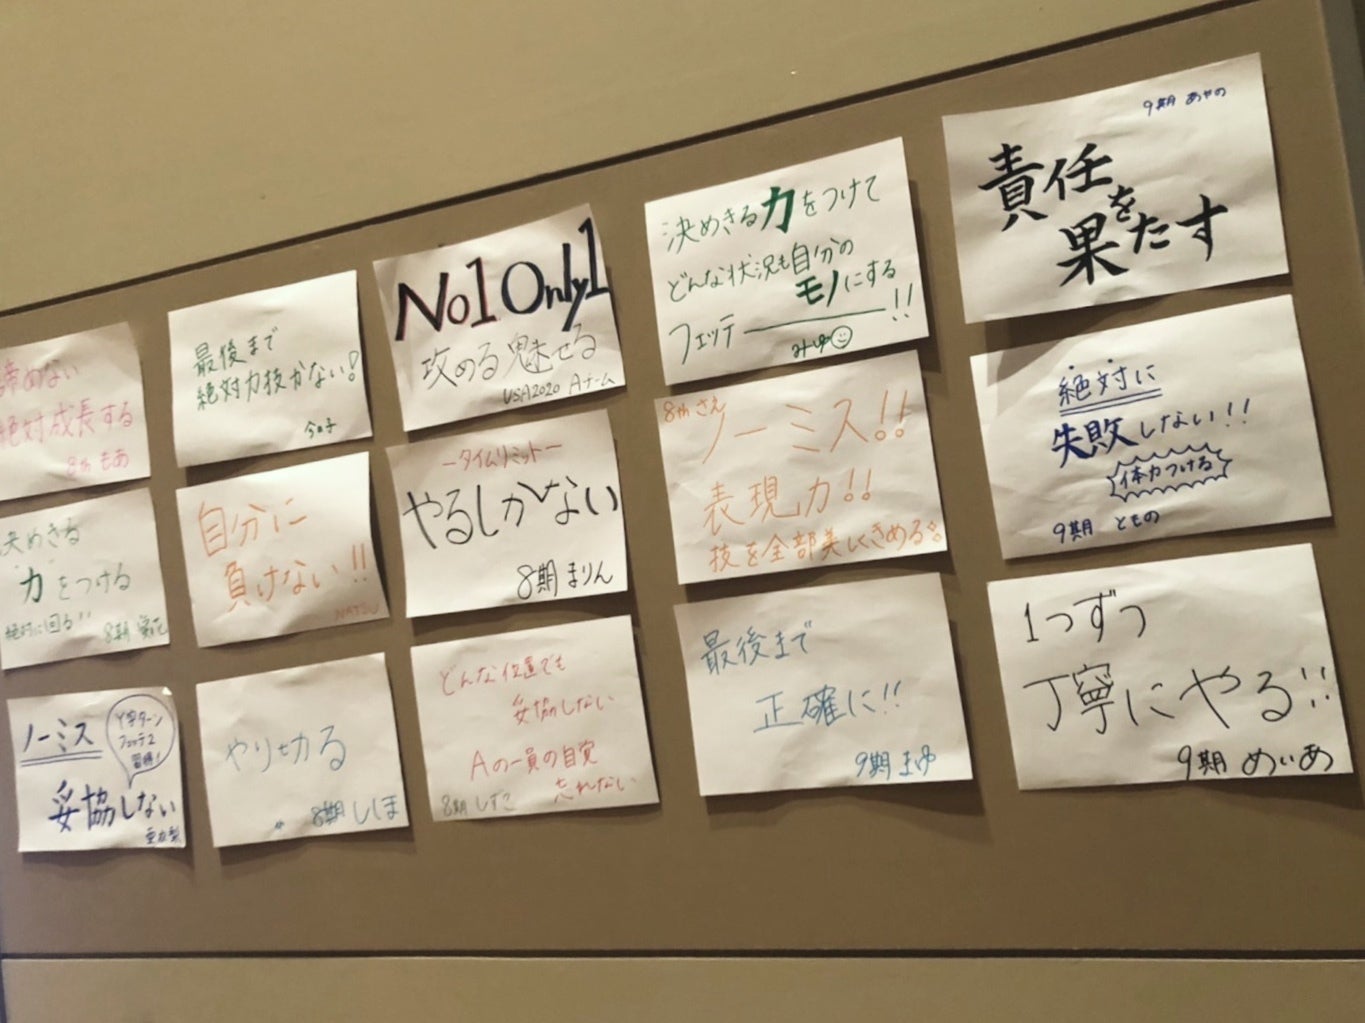 諦めない
絶対成長する
8th もあ
決めきる
力をつける
絶対に回る!!
8期
ノーミス
Y字ターン
フェッテ2
習得!
妥協しない
最後まで
絶対力技かない!
自分に
負けない!!
NATSU
やり切る
8期 ししま
No1 Only1
攻める魅せる
USA2020 Aチーム
-タイムリミット-
やるしかない
8期 まりん
どんな位置でも
妥協しない
Aの一員の自覚
忘れない
8期 しずこ
決めきる力をつけて
どんな状況も自分の
モノにする
フェッテ――!!
みゆ
8th さえ
ノーミス!!
表現力!!
技を全部美しくきめる
最後まで
正確に!!
9期 まゆ
9期 あやの
責任
を
果たす
絶対に
失敗しない!!
体力つける
9期 ともの
1つずつ
丁寧にやる!!
9期 めいあ